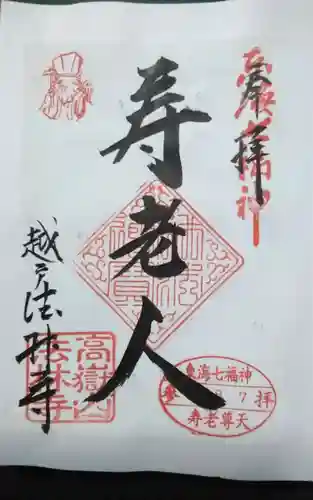 奉拝
寿老人
越戸法林寺
高嶽山
法林寺
東海七福神
7 拝
寿老尊天